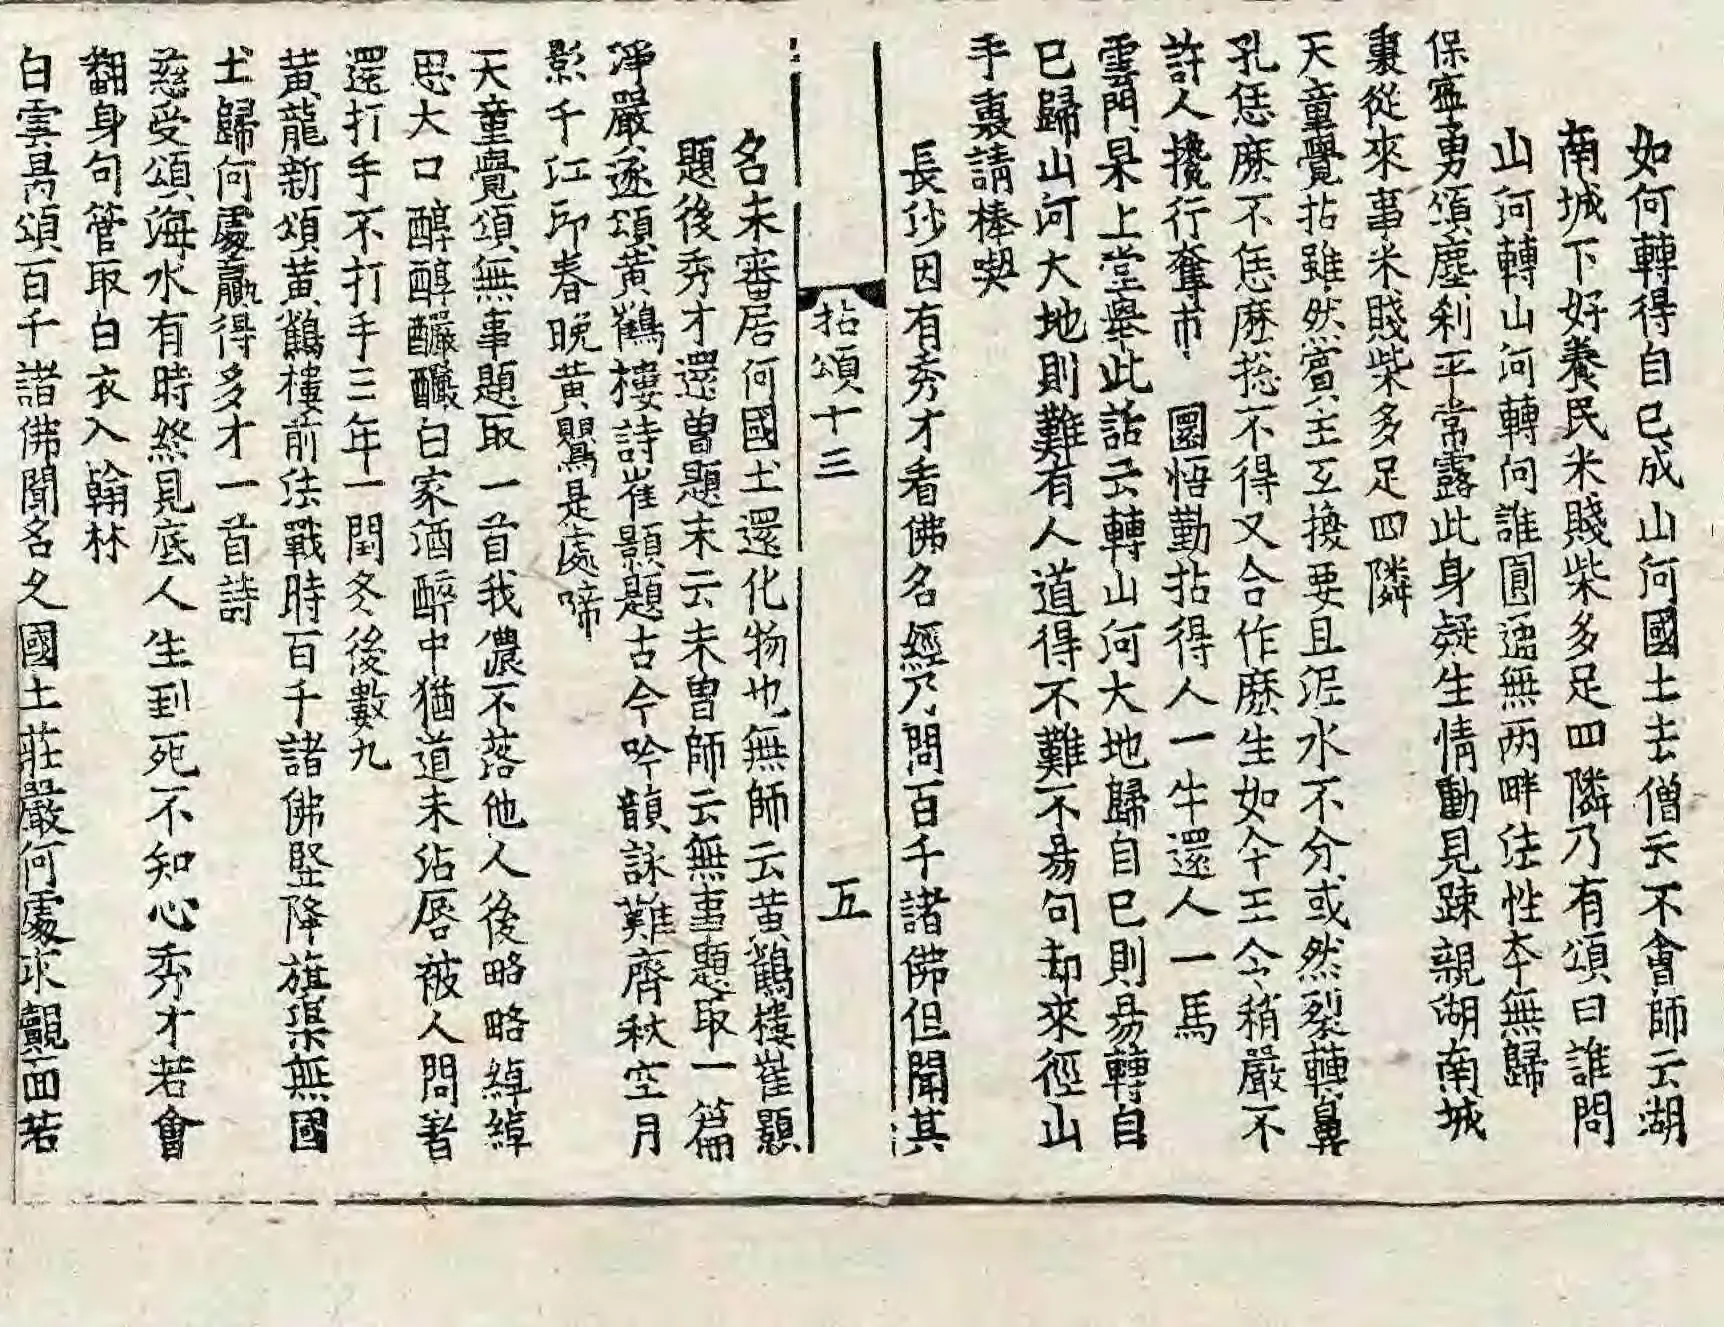 如何轉得自己成山河國土去僧云不會師云湖
南城下好養民米賤柴多足四隣乃有頌曰誰問
山河轉山河轉向誰圓通無兩畔法性本無歸
保寧勇頌塵刹平常露此身疑生情動見踈親湖南城
裏從來事米賤柴多足四隣
天童覺拈雖然賓主互換要且泥水不分或然裂轉鼻
孔恁麽不恁麽捴不得又合作麽生如今王令稍嚴不
許人攙行奪市 圜悟勤拈得人一牛還人一馬
雲門杲上堂舉此話云轉山河大地歸自己則易轉自
己歸山河大地則難有人道得不難不易句却來徑山
手裏請棒喫
長沙因有秀才看佛名經乃問百千諸佛但聞其
拈頌十三 五
名未審居何國土還化物也無師云黃鶴樓崔顥
題後秀才還曾題未云未曾師云無事題取一篇
淨嚴遂頌黃鶴樓詩崔顥題古今吟韻詠難齊秋空月
影千江印春晚黃鸎是處啼
天童覺頌無事題取一首我儂不落他人後略略綽綽
思大口醇醇釅釅白家酒醉中猶道未沾唇被人問着
還打手不打手三年一閏冬後數九
黃龍新頌黃鶴樓前法戰時百千諸佛竪降旗渠無國
土歸何處贏得多才一首詩
慈受頌海水有時終見底人生到死不知心秀才若會
翻身句管取白衣入翰林
白雲昺頌百千諸佛聞名久國土莊嚴何處求覿面若